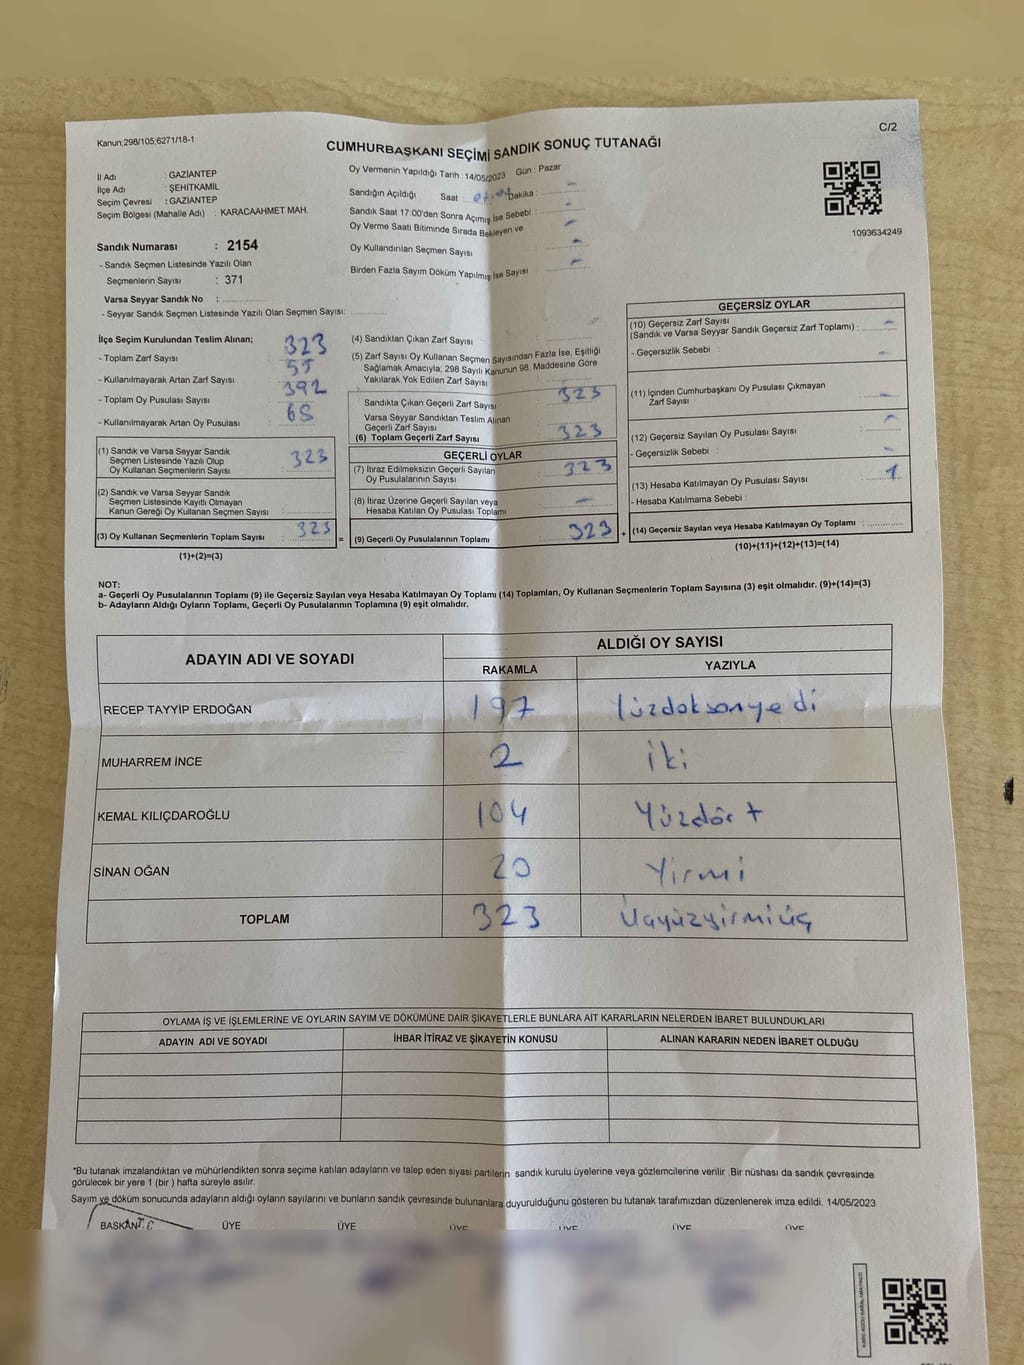 Kanun;298/105;6271/18-1
C/2
CUMHURBAŞKANI SEÇİMİ SANDIK SONUÇ TUTANAĞI
İl Adı : GAZİANTEP
İlçe Adı : ŞEHİTKAMİL
Seçim Çevresi : GAZİANTEP
Seçim Bölgesi (Mahalle Adı) : KARACAAHMET MAH.
Sandık Numarası : 2154
- Sandık Seçmen Listesinde Yazılı Olan
Seçmenlerin Sayısı : 371
Varsa Seyyar Sandık No :
- Seyyar Sandık Seçmen Listesinde Yazılı Olan Seçmen Sayısı:
Oy Vermenin Yapıldığı Tarih 14/05/2023 Gün : Pazar
Sandığın Açıldığı Saat : Dakika :
Sandık Saat 17:00'den Sonra Açımış İse Sebebi :
Oy Verme Saati Bitiminde Sırada Bekleyen ve
Oy Kullandırılan Seçmen Sayısı
Birden Fazla Sayım Döküm Yapılmış İse Sayısı
1093634249
İlçe Seçim Kurulundan Teslim Alınan;
- Toplam Zarf Sayısı : 323
- Kullanılmayarak Artan Zarf Sayısı :
- Toplam Oy Pusulası Sayısı : 392
- Kullanılmayarak Artan Oy Pusulası :
(1) Sandık ve Varsa Seyyar Sandık
Seçmen Listesinde Yazılı Olup
Oy Kullanan Seçmenlerin Sayısı : 323
(2) Sandık ve Varsa Seyyar Sandık
Seçmen Listesinde Kayıtlı Olmayan
Kanun Gereği Oy Kullanan Seçmen Sayısı :
(3) Oy Kullanan Seçmenlerin Toplam Sayısı : 323
(1)+(2)=(3)
(4) Sandıktan Çıkan Zarf Sayısı :
(5) Zarf Sayısı Oy Kullanan Seçmen Sayısından Fazla İse, Eşitliği
Sağlamak Amacıyla; 298 Sayılı Kanunun 98. Maddesine Göre
Yakılarak Yok Edilen Zarf Sayısı
Sandıkta Çıkan Geçerli Zarf Sayısı : 323
Varsa Seyyar Sandıktan Teslim Alınan
Geçerli Zarf Sayısı
(6) Toplam Geçerli Zarf Sayısı : 323
GEÇERLİ OYLAR
(7) İtiraz Edilmeksizin Geçerli Sayılan
Oy Pusulalarının Sayısı : 323
(8) İtiraz Üzerine Geçerli Sayılan veya
Hesaba Katılan Oy Pusulası Toplamı :
= (9) Geçerli Oy Pusulalarının Toplamı : 323 +
GEÇERSİZ OYLAR
(10) Geçersiz Zarf Sayısı
(Sandık ve Varsa Seyyar Sandık Geçersiz Zarf Toplamı) :
- Geçersizlik Sebebi
(11) İçinden Cumhurbaşkanı Oy Pusulası Çıkmayan
Zarf Sayısı
(12) Geçersiz Sayılan Oy Pusulası Sayısı
- Geçersizlik Sebebi :
(13) Hesaba Katılmayan Oy Pusulası Sayısı : 1
- Hesaba Katılmama Sebebi :
(14) Geçersiz Sayılan veya Hesaba Katılmayan Oy Toplamı :
(10)+(11)+(12)+(13)=(14)
NOT:
a- Geçerli Oy Pusulalarının Toplamı (9) ile Geçersiz Sayılan veya Hesaba Katılmayan Oy Toplamı (14) Toplamları, Oy Kullanan Seçmenlerin Toplam Sayısına (3) eşit olmalıdır. (9)+(14)=(3)
b- Adayların Aldığı Oyların Toplamı, Geçerli Oy Pusulalarının Toplamına (9) eşit olmalıdır.
ADAYIN ADI VE SOYADI
ALDIĞI OY SAYISI
RAKAMLA YAZIYLA
RECEP TAYYİP ERDOĞAN 197 Yüzdoksanyedi
MUHARREM İNCE 2 iki
KEMAL KILIÇDAROĞLU 104 Yüzdört
SİNAN OĞAN 20 Yirmi
TOPLAM 323 Üçyüzyirmiüç
OYLAMA İŞ VE İŞLEMLERİNE VE OYLARIN SAYIM VE DÖKÜMÜNE DAİR ŞİKAYETLERLE BUNLARA AİT KARARLARIN NELERDEN İBARET BULUNDUKLARI
ADAYIN ADI VE SOYADI İHBAR İTİRAZ VE ŞİKAYETİN KONUSU ALINAN KARARIN NEDEN İBARET OLDUĞU
*Bu tutanak imzalandıktan ve mühürlendikten sonra seçime katılan adayların ve talep eden siyasi partilerin sandık kurulu üyelerine veya gözlemcilerine verilir .Bir nüshası da sandık çevresinde
görülecek bir yere 1 (bir ) hafta süreyle asılır.
Sayım ve döküm sonucunda adayların aldığı oyların sayılarını ve bunların sandık çevresinde bulunanlara duyurulduğunu gösteren bu tutanak tarafımızdan düzenlenerek imza edildi. 14/05/2023
BAŞKAN ÜYE ÜYE ÜYE ÜYE ÜYE ÜYE